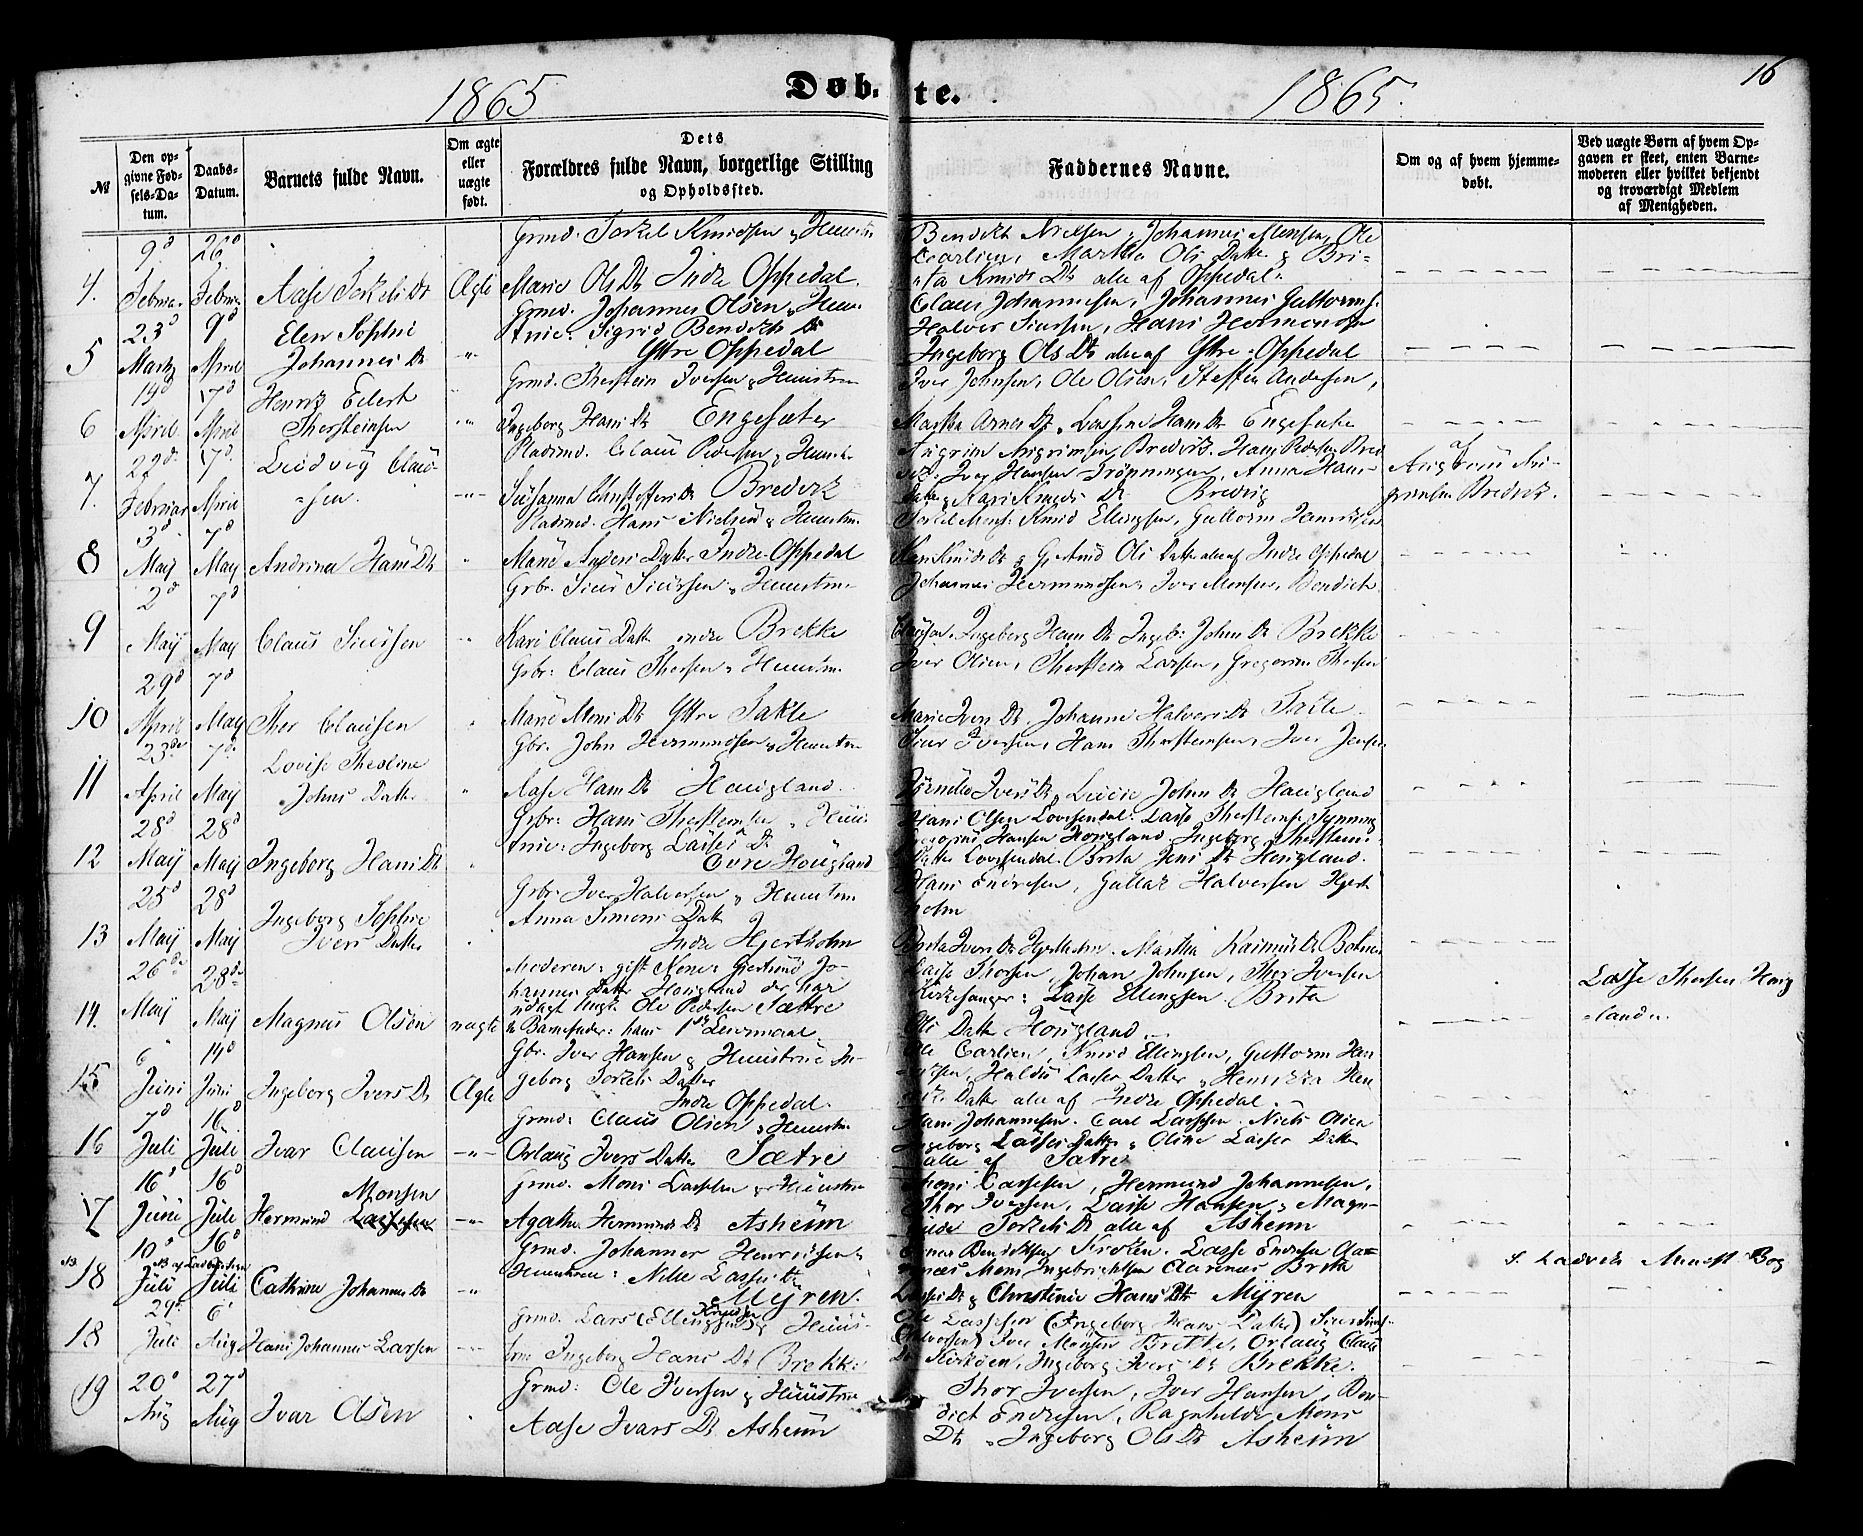 1865 Døb- te. 1865. 16
№
Den opgivne Fødsels-Datum.
Daabs-Datum.
Barnets fulde Navn.
Om ægte eller uægte født.
Dets
Forældres fulde Navn, borgerlige Stilling
og Opholdssted.
Faddernes Navne.
Om og af hvem hjemmedøbt.
Ved uægte Børn af hvem Opgaven er skeet, enten Barnemoderen eller hvilket bekjendt og troværdigt Medlem af Menigheden.
4. 9d Februar 26d Februar Aase Torkels Dt Ægte
Grmd. Torkel Knudsen & Hustru
Marie Ols Dt Indre Oppedal.
Johannes Monsen, Ole
Martha Ols Datter & Bri-
ta Knuds Dt alle af Oppedal.
5 23d Marts 9d April Elen Sophie
Johannes Dt -"-
Grmd. Johannes Olsen & Hus-
true. Sigrid Bendiks Dt
Yttre Oppedal
Claus Johannesen, Johannes Guttorms.
Halvor Siursen, Hans Hermundsen
Ingeborg Ols Dt alle af Yttre Oppedal
6 19d April 17d April Henrik Edert
Thersteinsen
Grmd. Therstein Iversen & Hustrue
Ingeborg Hans Dt Engesæter
Iver Johnsen, Ole Olsen, Steffen Andersen,
Martha Arnes Dt, Hans Dt Engesæter
7. 22d Februar 17d April Ludvig Claus-
sen. -"-
Pladsmd. Claus Pedersen & Hustr.
Susanna Christoffers Dt Bredvik
Iver Hansen Trönningen, Anna Hans-
Datter & Kari Knuds Dt Bredvig
af
8 3d May 7d May Andrina Hans Dt
Pladsmd. Hans Nielsen & Hustru
Marie Anders Datter Indre Oppedal
Torkel Mons. Knud Ellingsen, Guttorm Henriksen
Kari Knuds Dt & Gertrud Ols Datter alle af Indre Oppedal
9 2d May 7d May Claus Siursen
Grbr. Siur Siursen & Hustrue
Kari Claus Datter indre Brekke
Johannes Hermundsen, Iver Monsen, Bendick
Clausen, Ingeborg Hans Dt Ingeb: Johns Dt Brekke
10 29d April 7d May Ther Clausen
Grbr: Claus Thersen & Hustru
Marie Mons Dt Yttre Takle
Iver Olsen, Therstein Larsen, Gregorius Thersen
Marie Ivers Dt. Johanne Halvors Dt Takle.
11 23de April 7de May Lovise Thestine
Johns Datter
Gbr. John Hermundsen & Hustru
Aase Hans Dt Hougland.
Siur Iversen, Hans Thersteinsen, Iver Jensen
Ivers Dt, Johns Dt Hougland
12 28d May 28d May Ingeborg Hans Dt
Grbr: Hans Thersteinsen & Hus-
true: Ingeborg Lasses Dt
Övre Hougland
Hans Olsen Lovisendal. Lasse Therstens. Tynning
Gregorius Hansen Hougland, Ingeborg Thersteins
Datter Lovisendal. Brita Jens Dt Hougland.
13 25d May 28d May Ingeborg Sophie
Ivers Datter
Grbr. Iver Halvorsen & Hustru
Anna Simons Datt
Indre Hjertholm
Hans Endresen, Gullak Halvorsen Hjert-
holm
Brita Ivers Dt Hjertholm. Martha Rasmus Dt Botnen
14. 26de May 28de May Magnus Olsen uægte
Moderen: gift Kone: Gjertrud Jo-
hannes Datter Hougland der har
udlagt Ungk. Ole Pedersen Sættre
til Barnefader: hans 1ste Leiermaal
Lasse Thersen, Johan Johnsen, Ther Iversen
Kirkesanger: Lasse Ellingsen. Brita
Ols Datter Hougland.
Lasse Thersen Houg-
land.
15 6 Juni 14d Juni Ingeborg Ivers Dt Ægte
Gbr. Iver Hansen & Hustrue In-
geborg Torkels Datter
Indre Oppedal.
Ole Carlsen, Knud Ellingsen, Guttorm Hen-
riksen, Haldis Lasses Datter, Henrikka Hen-
riks Datter alle af Indre Oppedal.
16 7d Juli 16d Juli Ivar Clausen -"-
Grmd: Claus Olsen & Hustru
Orlaug Ivers Datter Sætre
Hans Johannesen. Carl Larssen. Niels Olsen
Ingeborg Lasses Datter, Oline Lasses Datter
alle af Sætre
17 16d Juni 16d Juli Monsen
Hermund Lassesen -"-
Grmd. Mons Lassesen & Hustru
Agathe Hermunds Dt Asheim
Mons Lassesen, Hermund Johannesen,
Thor Iversen, Lasse Hansen, Magn-
hilde Torkels Dt alle af Asheim
NB 18 10d Juli 16d Juli Cathrine Johannes Dt -"-
Grmd. Johannes Henriksen &
Hustrue: Nille Lasses Dt
Myren.
Lasse Endresen Aar-
næs Mons Ingebrigtsen Aarenæs Brita
Lasses Dt & Christine Hans Dt Myren
S. Ladvik Minist Bog
18 29d Juli 6d Aug Hans Johannes Larsen -"-
Grmd. Lars (Ellingsen) Knudsen & Hus-
true Ingeborg Hans Dt Brekke.
Ole Lassesen (Ingeborg Hans Datter)
Halvorsen) Iver Monsen Brekke, Orlaug Claus
Dt, Ingeborg Ivers Dt Brekke.
19 20d Aug 27d Aug Ivar Olsen
Grmd: Ole Iversen & Hustrue
Aase Ivars Dt Asheim
Thor Iversen, Iver Hansen, Ben-
dict Endresen, Ragnhilde Mons
Dt, Ingeborg Ols Dt Asheim